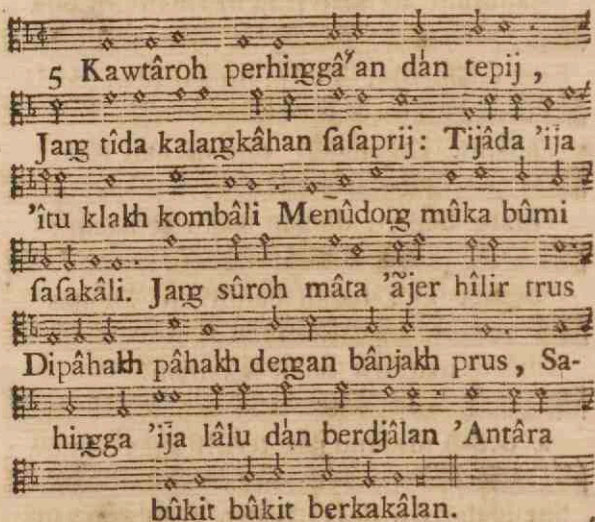 5 Kawtâroh perhinggâ'an dàn tepij ,
Jang tîda kalangkâhan ſaſaprij: Tijâda 'ija
'îtu klakh kombâli Menûdong mûka bûmi
ſaſakâli. Jang sûroh mâta 'ãjer hîlir trus
Dipâhakh pâhakh dengan bânjakh prus, Sa-
hingga 'ija lâlu dàn berdjâlan 'Antâra
bûkit bûkit berkakâlan.